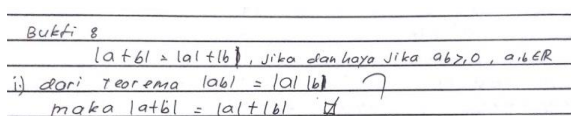 Bukti 8
|a+b| = |a|+|b|, jika dan haya jika ab≥,0, a,b∈R
i) dari teorema |ab| = |a| |b|
maka |a+b| = |a|+|b|